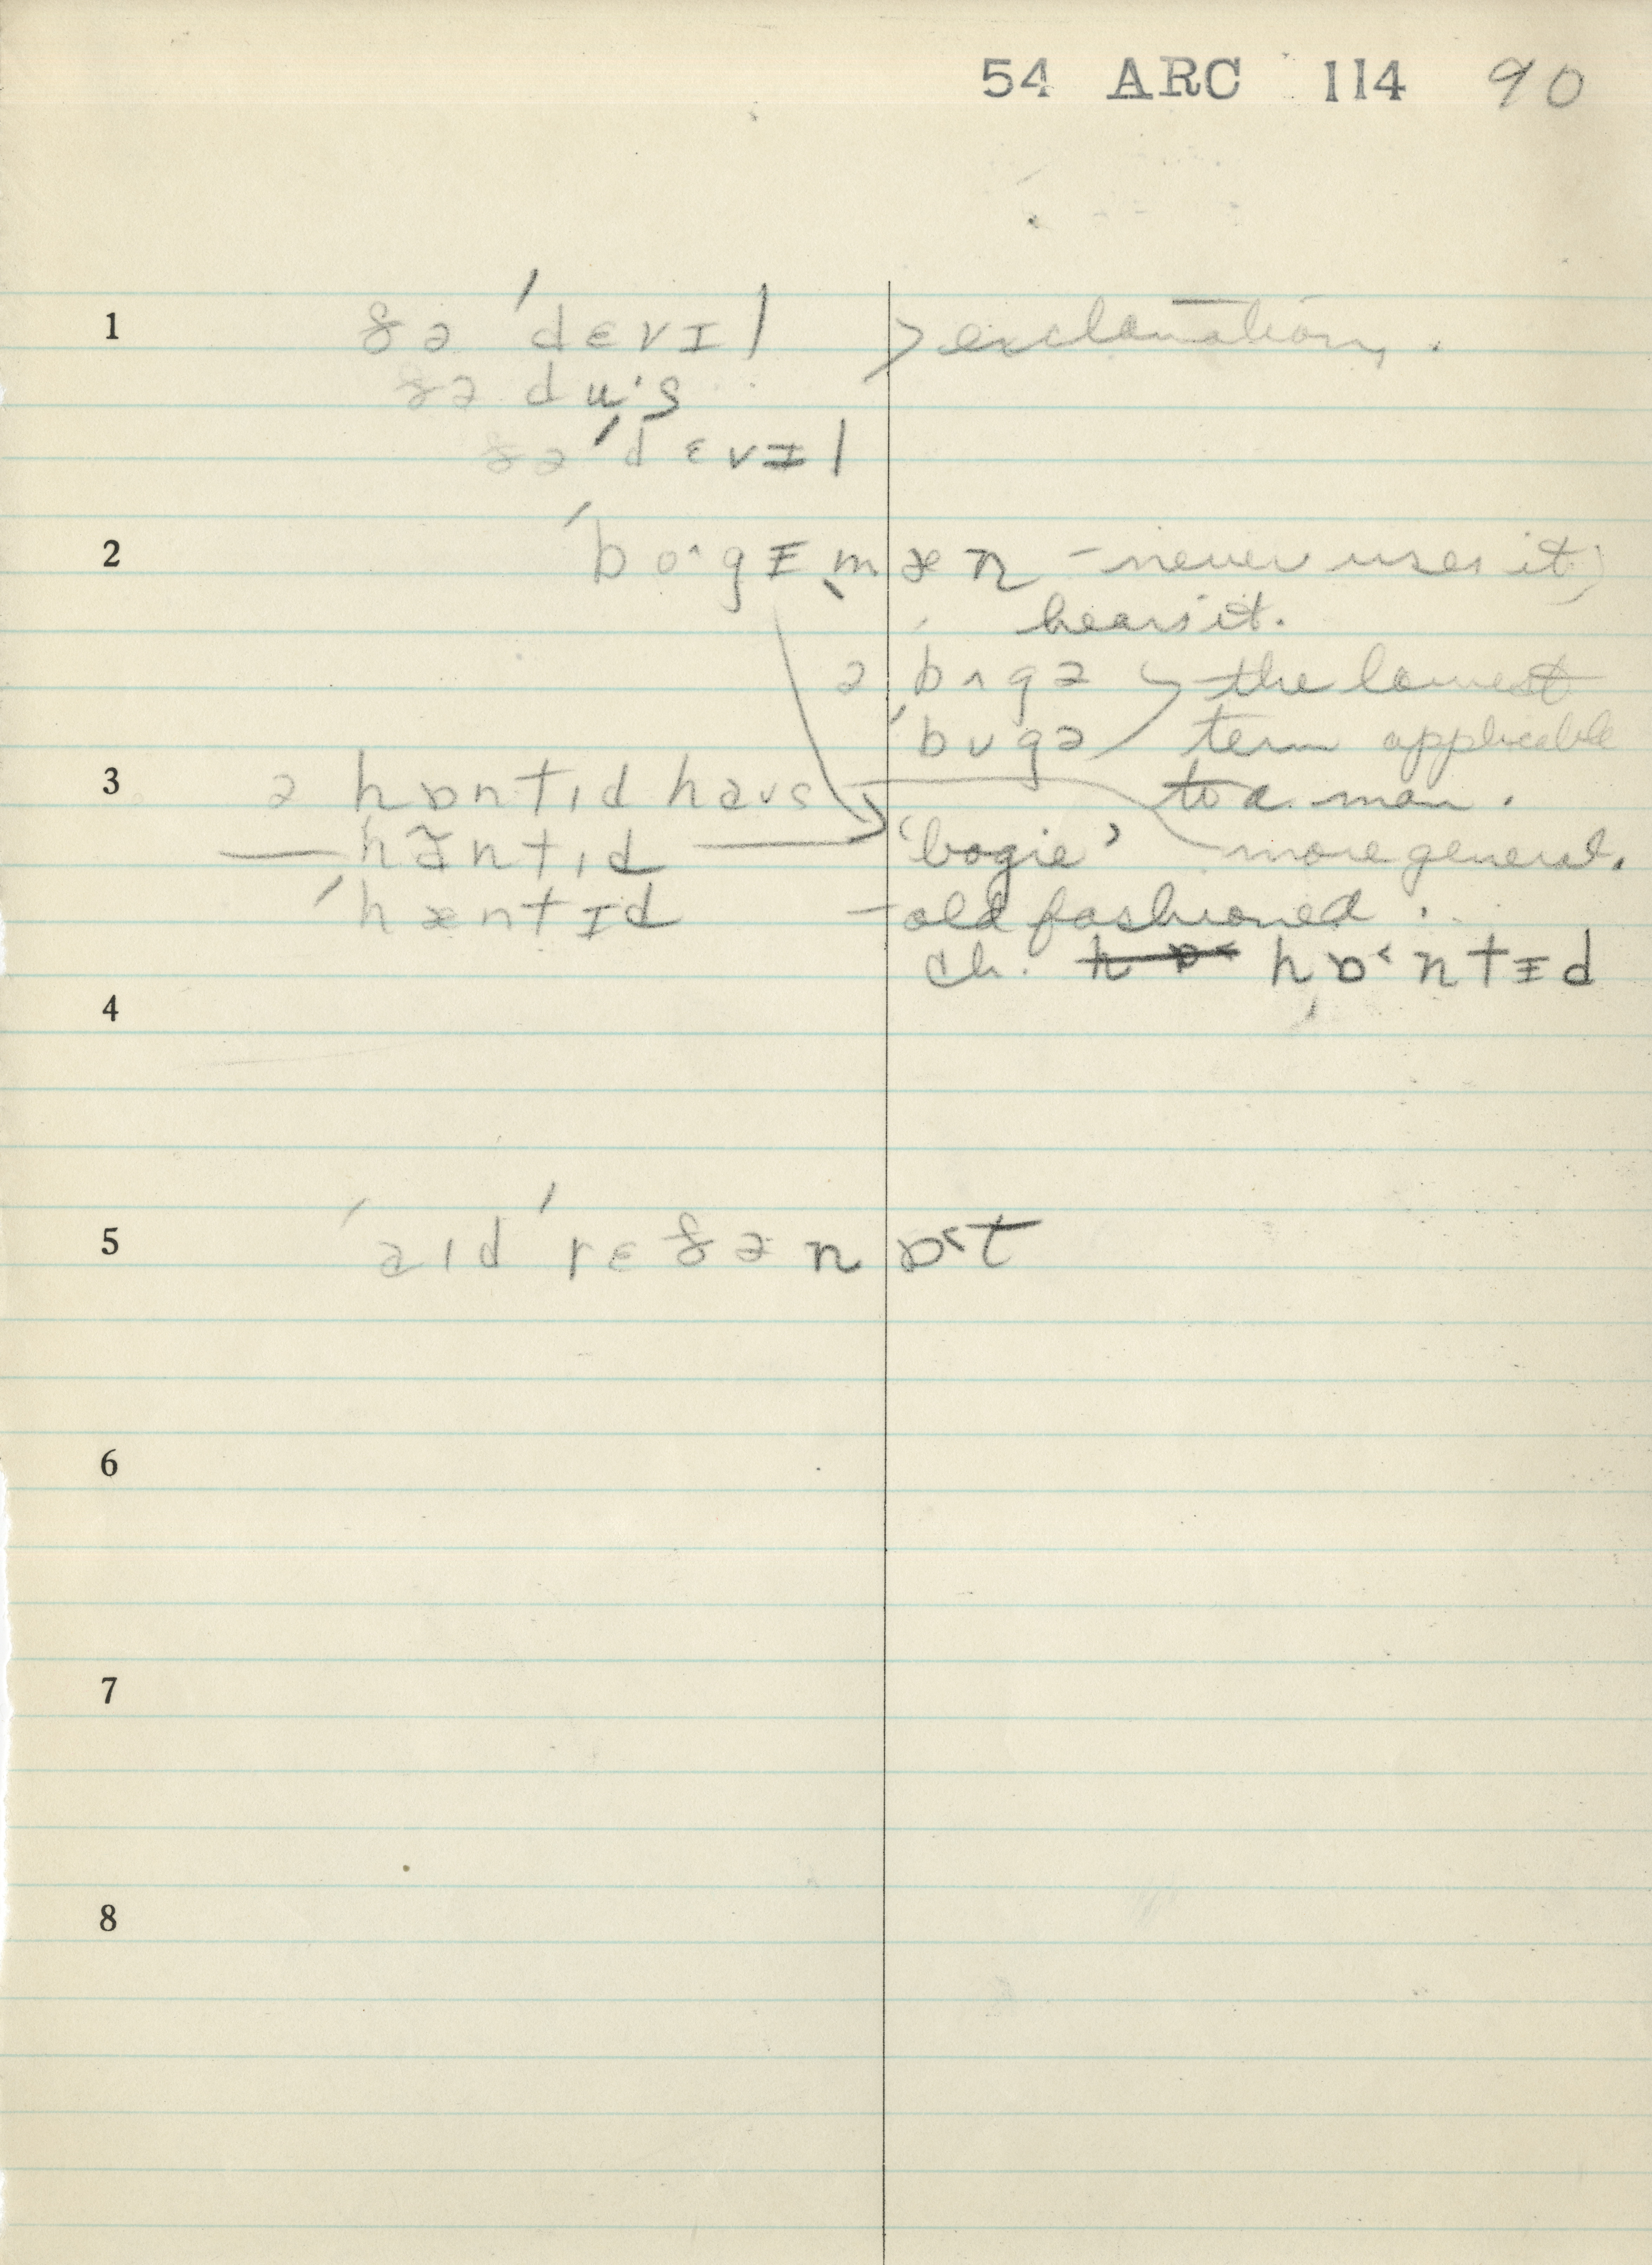 54 ARC 114 90
1 ðə ˈdɛvɪl > exclamation.
ðə du·s
ðə ˈdɛvɪl
2 ˈbo^gɪˌmæn – never uses it,
hears it.
ə ˈbʌgə the lowest
ˈbʊgə term applicable
3 ə hɒntɪd haus to a man.
— hæ̃ntɪd — 'bogie' more general.
ˈhæntɪd – old fashioned.
ch. hɒ˂ntɪd
4
5 ˈaɪd ˈrɛðə nɒ˂t
6
7
8